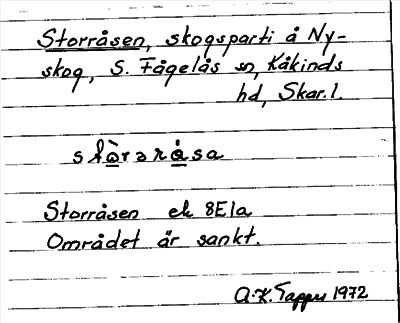 Storråsen, skogsparti å Ny-
skog, S. Fågelås sn, Kåkinds
hd, Skar. l.
Storråsen ek 8E1a
Området är sankt.
A.K. 1972